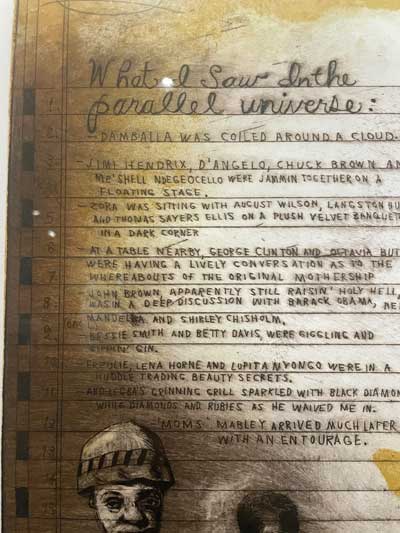 What I Saw In the
parallel universe:
– DAMBALLA WAS COILED AROUND A CLOUD.
– JIMI HENDRIX, D'ANGELO, CHUCK BROWN AN
ME'SHELL NDEGEOCELLO WERE JAMMIN TOGETHER ON A
FLOATING STAGE.
– ZORA WAS SITTING WITH AUGUST WILSON, LANGSTON HU
AND THOMAS SAYERS ELLIS ON A PLUSH VELVET BANQUET
IN A DARK CORNER
– AT A TABLE NEARBY, GEORGE CLINTON AND OCTAVIA BUT
WERE HAVING A LIVELY CONVERSATION AS TO THE
WHEREABOUTS OF THE ORIGINAL MOTHERSHIP
– JOHN BROWN, APPARENTLY STILL RAISIN' HOLY HELL,
WAS IN A DEEP DISCUSSION WITH BARACK OBAMA, NE
MANDELA AND SHIRLEY CHISHOLM.
– BESSIE SMITH AND BETTY DAVIS, WERE GIGGLING AND
SIPPIN' GIN.
– ERZULIE, LENA HORNE AND LUPITA NYONGO WERE IN A
HUDDLE TRADING BEAUTY SECRETS.
AND LEGBA'S GRINNING GRILL SPARKLED WITH BLACK DIAMON
WHILE DIAMONDS AND RUBIES AS HE WAIVED ME IN.
– 'MOMS' MABLEY ARRIVED MUCH LATER
WITH AN ENTOURAGE.